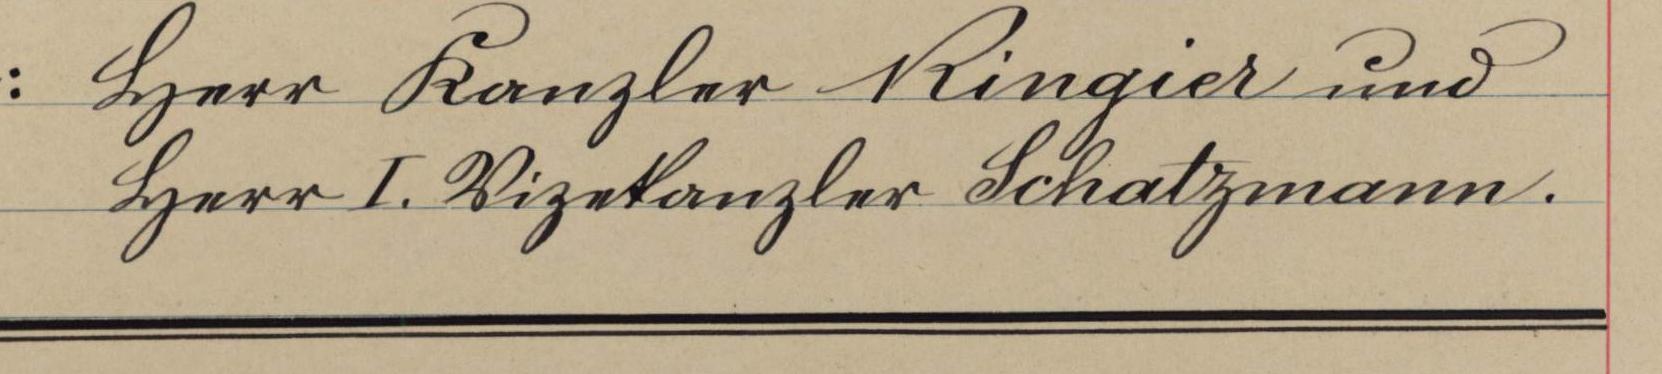 : Herr Kanzler Ringier und
Herr I. Vizekanzler Schatzmann.